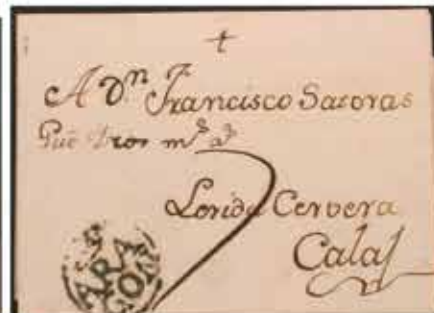 A Dn. Francisco Satoras
Gue Dios ms. as.
Lerida Cervera
Calaf
ARA
GON